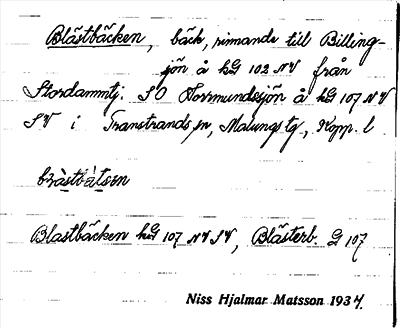 Blästbäcken, bäck, rinnande till Billing-
sjön å kG 102 NV från
Stordammtj. SO Horrmundsjön å kG 107 NV
SV i Transtrands sn, Malungs tg, Kopp. l.
bràstbàtsen
Blastbäcken kG 107 NV SV, Blästerb. G 107
Niss Hjalmar Matsson 1937.